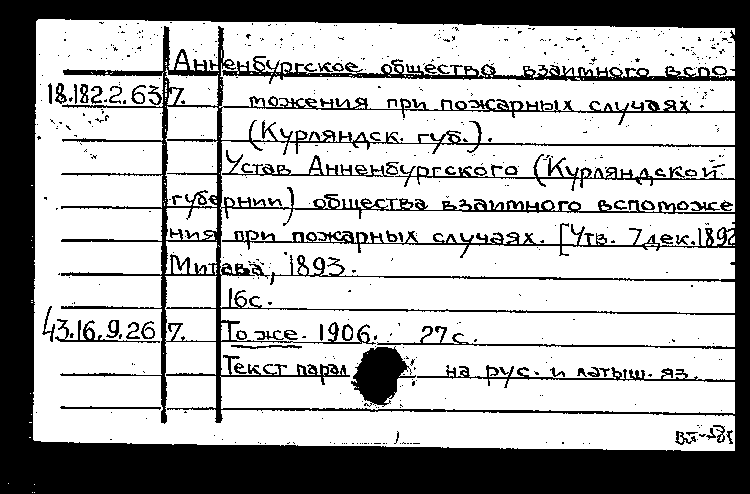 Анненбургское общество взаимного вспо-
18.182.2.637. можения при пожарных случаях.
(Курляндск. губ.).
Устав Анненбургского (Курляндской
губернии) общества взаимного вспоможе
ния при пожарных случаях. [Утв. 7 дек. 1892
Митава, 1893.
16с.
43.16.9.267. То же. 1906. 27с.
Текст парал на рус. и латыш. яз.